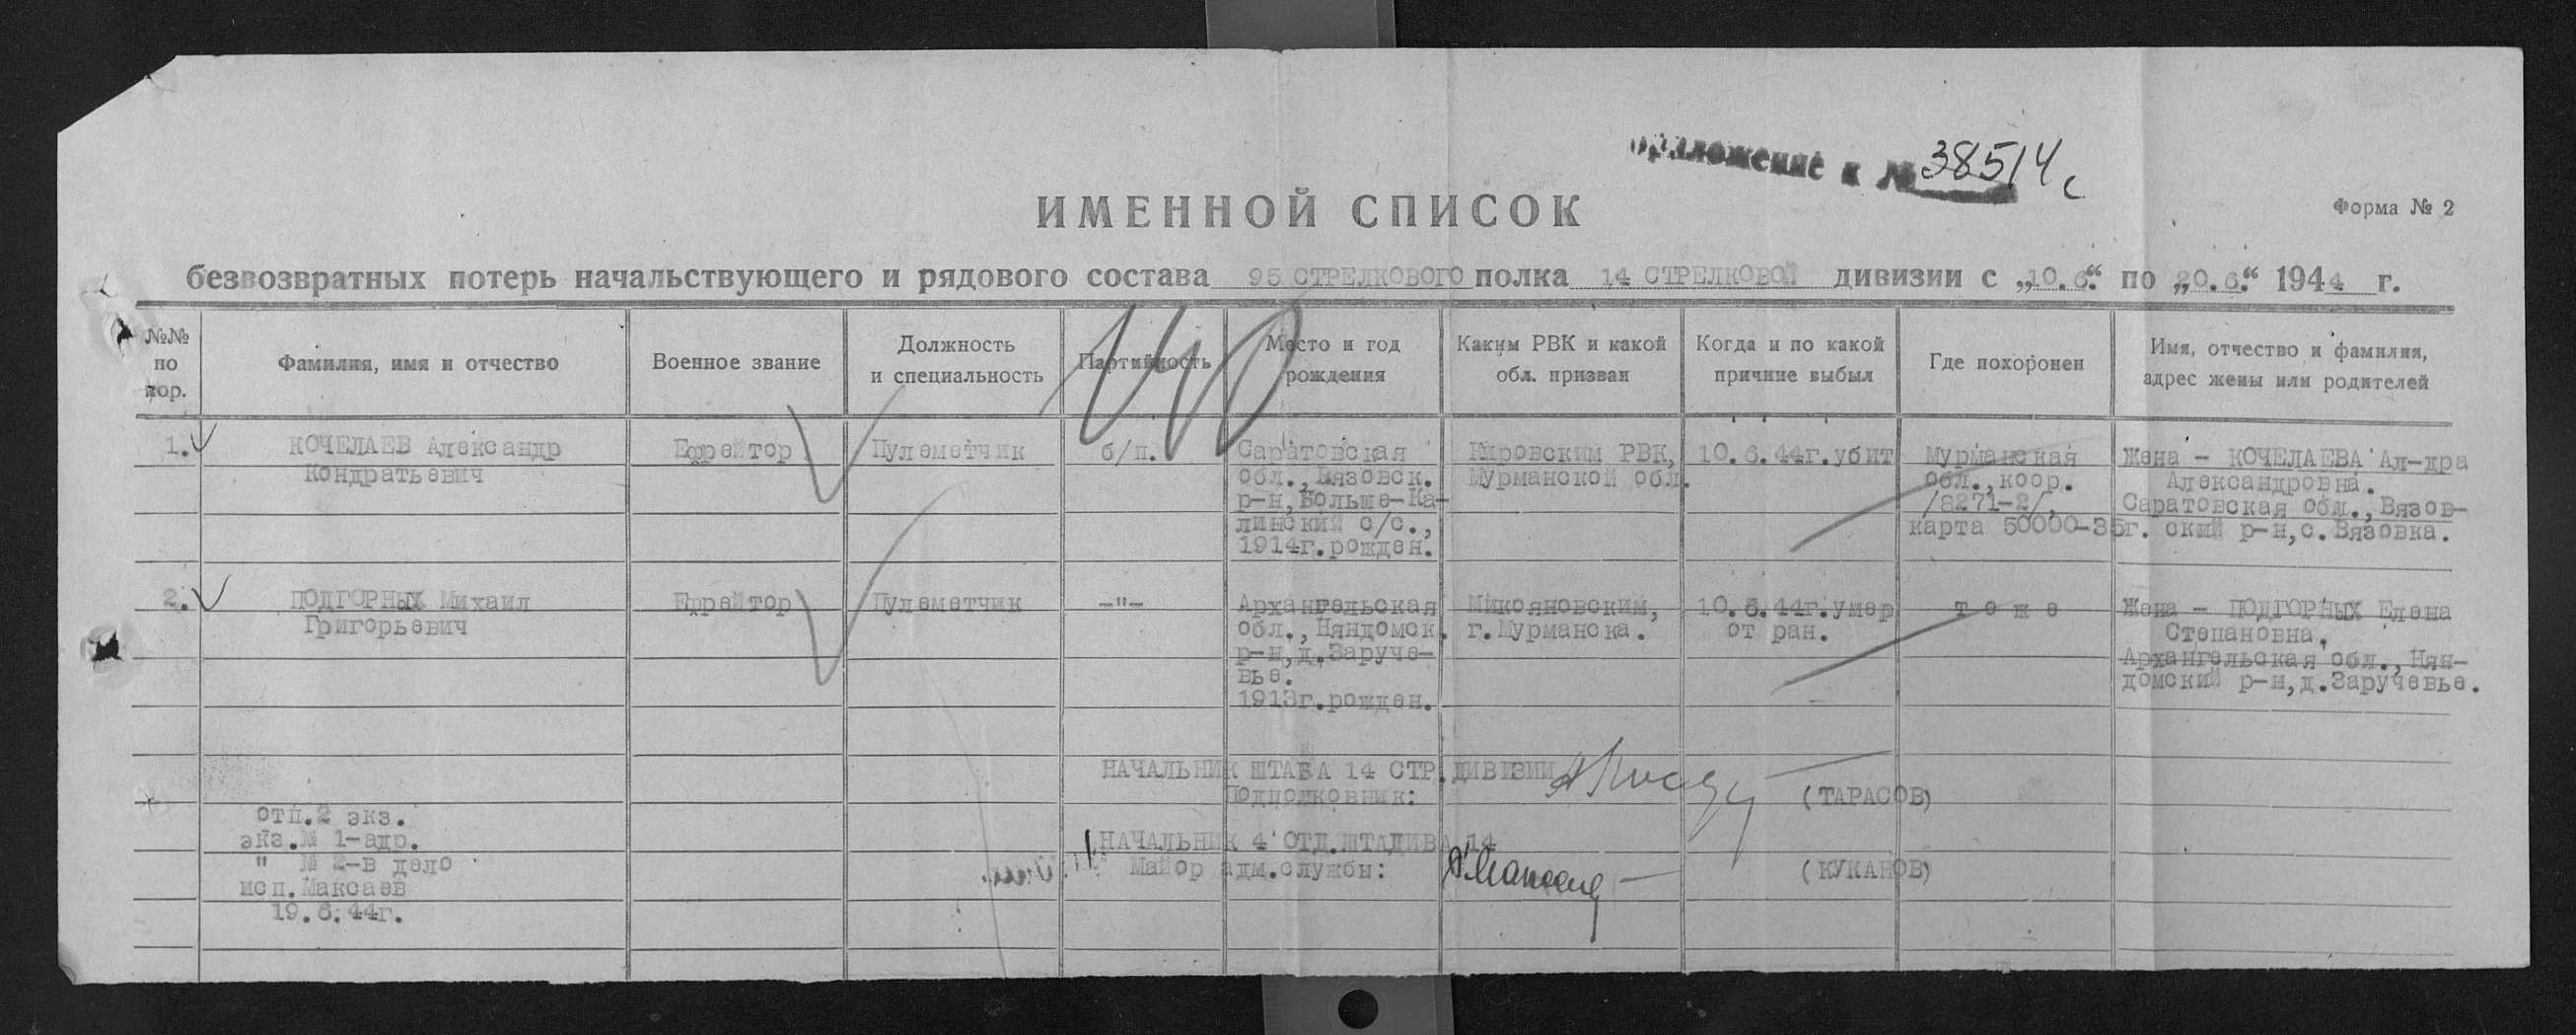 приложение к № 38514с
ИМЕННОЙ СПИСОК
Форма № 2
безвозвратных потерь начальствующего и рядового состава 95 СТРЕЛКОВОГО полка 14 СТРЕЛКОВОЙ дивизии с „10.6.“ по „20.6.“ 1944 г.
№№ по пор.
Фамилия, имя и отчество
Военное звание
Должность
и специальность
Партийность
Место и год
рождения
Каким РВК и какой
обл. призван
Когда и по какой
причине выбыл
Где похоронен
Имя, отчество и фамилия,
адрес жены или родителей
140
1.
КОЧЕЛАЕВ Александр
Кондратьевич
Ефрейтор
Пулеметчик
б/п.
Саратовская
обл., Вязовск.
р-н, Больше-Ка-
линский с/с.,
1914г. рожден.
Кировским РВК,
Мурманской обл.
10.6.44г. убит
Мурманская
обл., коор.
/8271-2/,
карта 50000-35г.
Жена - КОЧЕЛАЕВА Ал-дра
Александровна.
Саратовская обл., Вязов-
ский р-н, с. Вязовка.
2.
ПОДГОРНЫХ Михаил
Григорьевич
Ефрейтор
Пулеметчик
-"-
Архангельская
обл., Няндомск.
р-н, д. Заруче-
вье.
1913г. рожден.
Микояновским,
г. Мурманска.
10.6.44г. умер
от ран.
т о ж е
Жена - ПОДГОРНЫХ Елена
Степановна.
Архангельская обл., Нян-
домский р-н, д. Заручевье.
НАЧАЛЬНИК ШТАБА 14 СТР. ДИВИЗИИ
Подполковник: (ТАРАСОВ)
НАЧАЛЬНИК 4 ОТД. ШТАДИВА 14
Майор адм. службы: (КУКАНОВ)
отп. 2 экз.
экз. № 1-адр.
" № 2-в дело
исп. Максаев
19.6.44г.